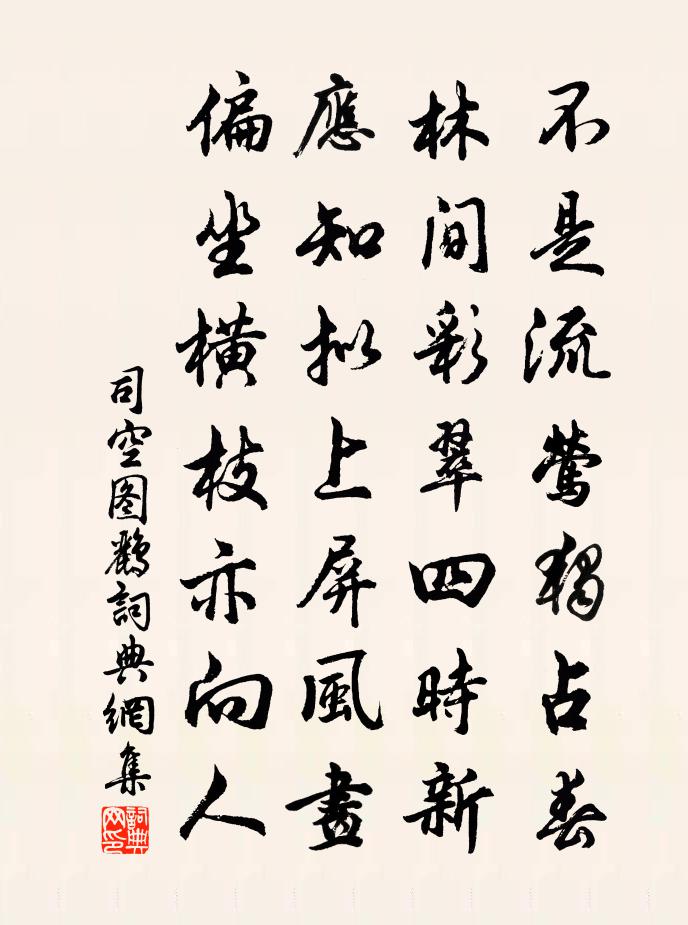 不是流鶯獨占春
林間彩翠四時新
應知拟上屏風畫
偏坐橫枝亦向人
司空图鸂詞典網集
詞典網印